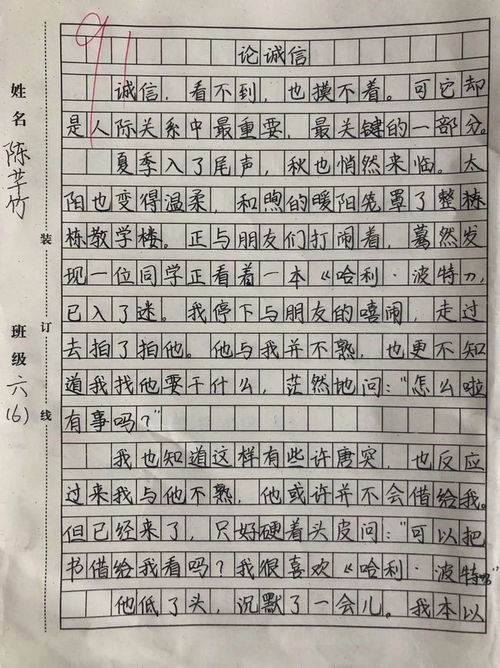 91
论诚信
诚信，看不到，也摸不着。可它却
是人际关系中最重要，最关键的一部分。
夏季入了尾声，秋也悄然来临。太
阳也变得温柔，和煦的暖阳笼罩了整栋
栋教学楼。正与朋友们打闹着，蓦然发
现一位同学正看着一本《哈利·波特》，
已入了迷。我停下与朋友的嘻闹，走过
去拍了拍他。他与我并不熟，也更不知
道我找他要干什么，茫然地问："怎么啦
有事吗？"
我也知道这样有些许唐突，也反应
过来我与他不熟，他或许并不会借给我。
但已经来了，只好硬着头皮问："可以把
书借给我看吗？我很喜欢《哈利·波特
他低了头，沉默了一会儿。我本以
姓名 陈芊竹
班级 六(6)
装
订
线